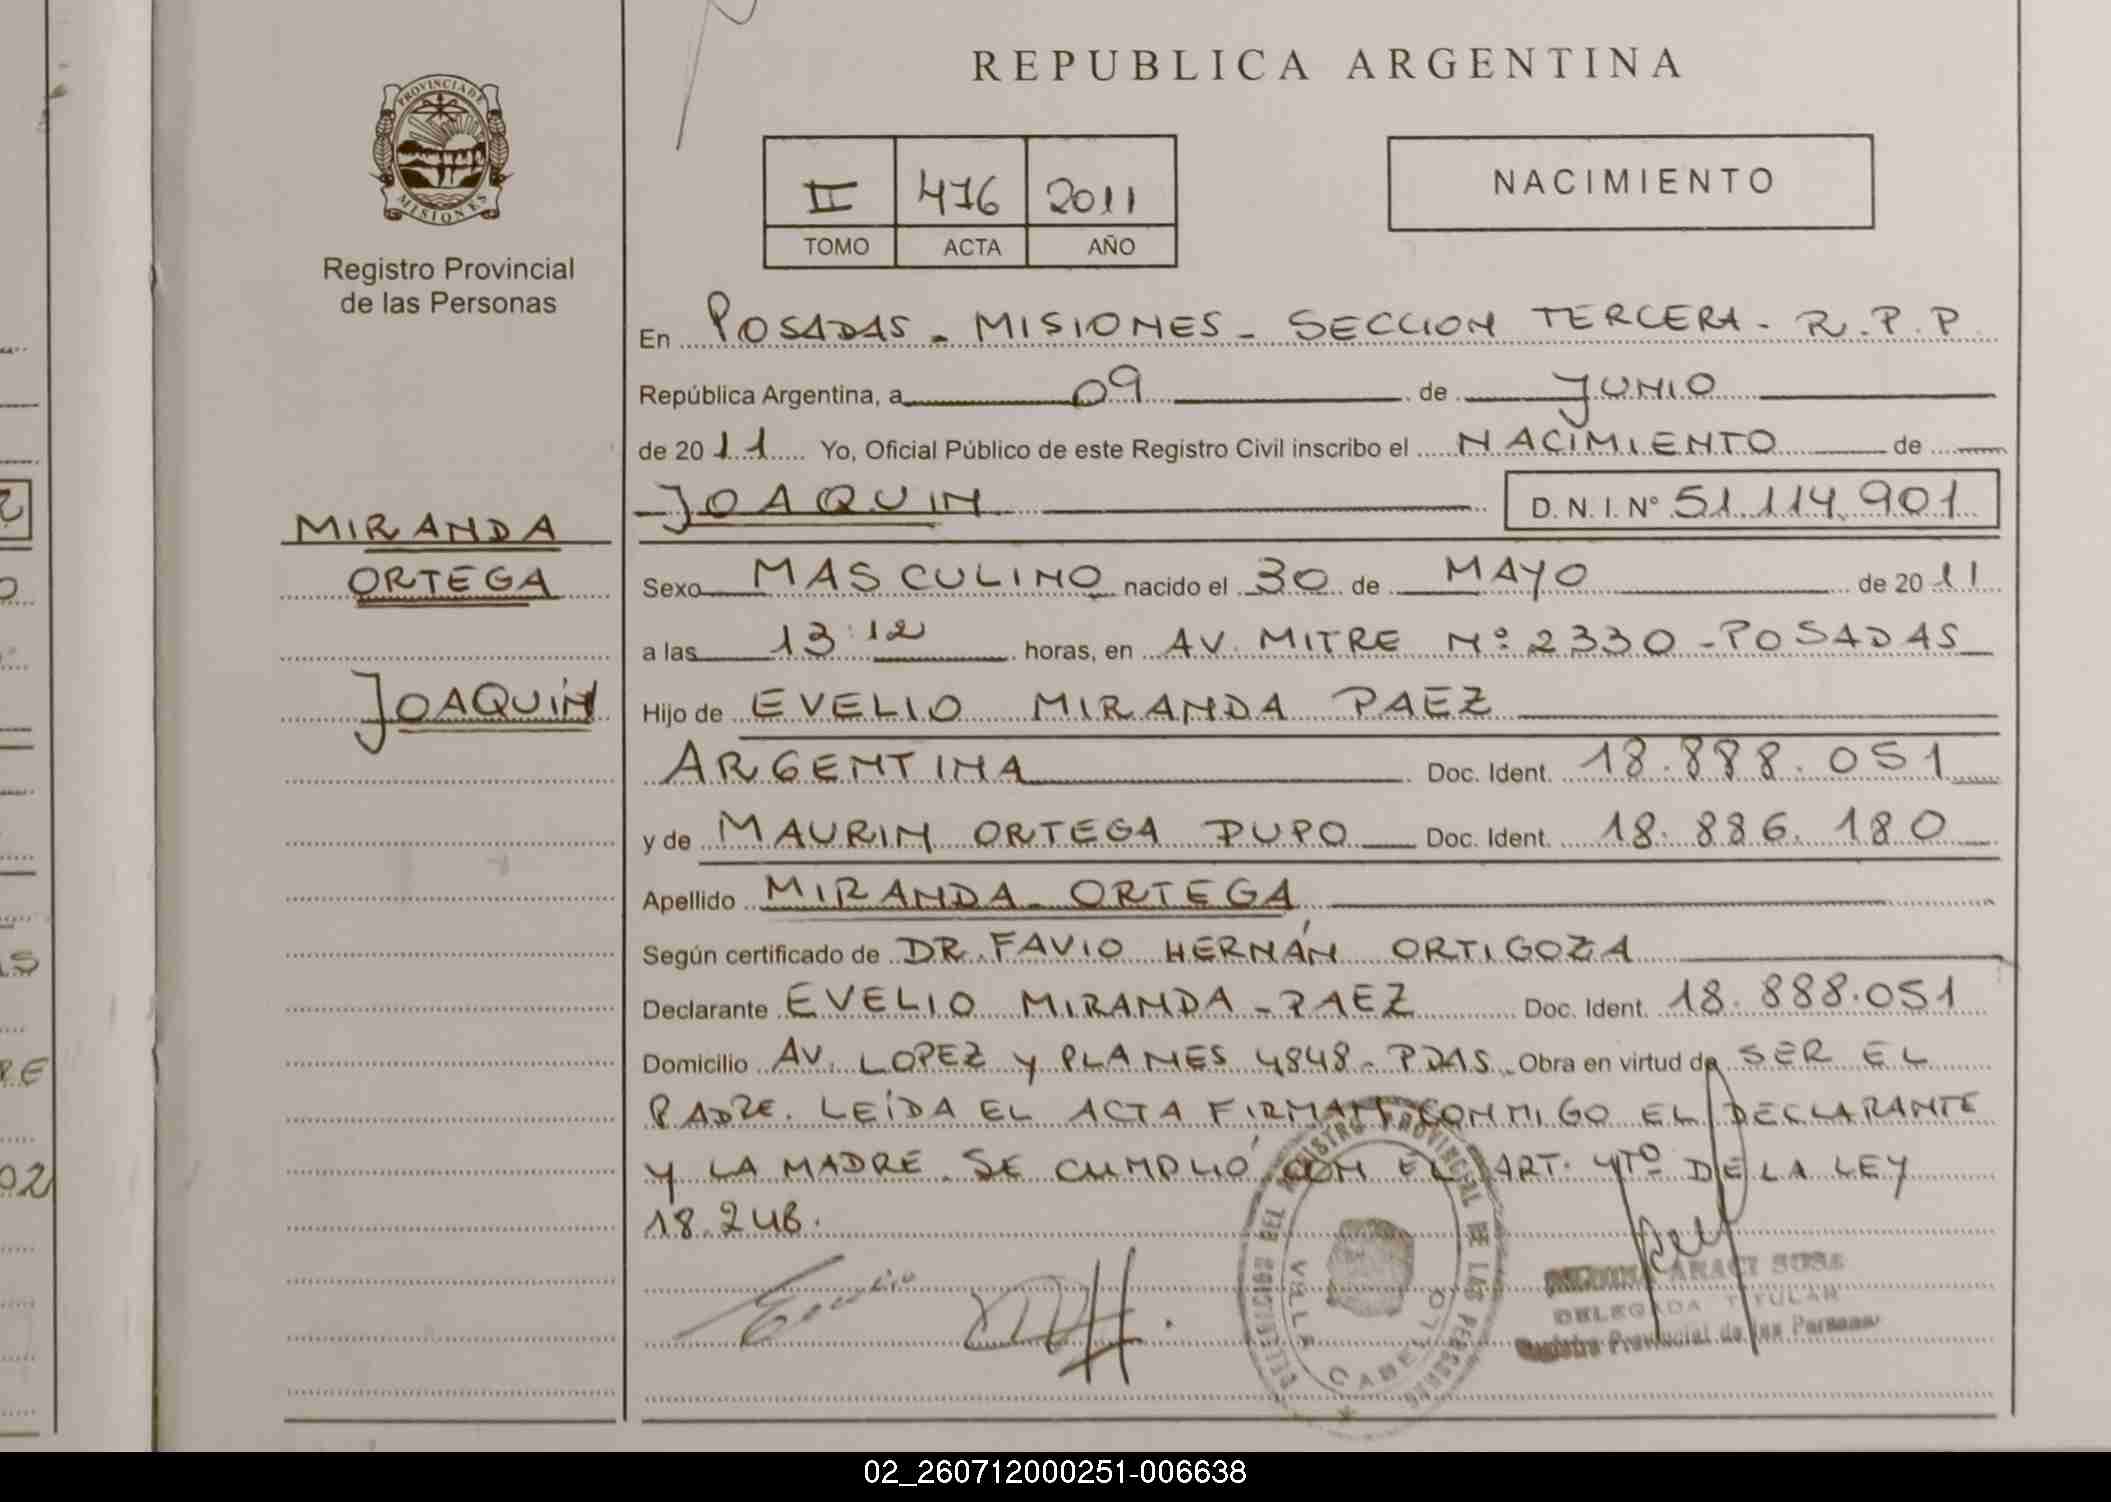 REPUBLICA ARGENTINA
PROVINCIA DE MISIONES
Registro Provincial
de las Personas
II 476 2011
TOMO ACTA AÑO
NACIMIENTO
En POSADAS - MISIONES - SECCION TERCERA - R.P.P
República Argentina, a 09 de JUNIO
de 2011 Yo, Oficial Público de este Registro Civil inscribo el NACIMIENTO de
JOAQUIN D.N.I. Nº 51.114.901
MIRANDA
ORTEGA
JOAQUÍN
Sexo MASCULINO nacido el 30 de MAYO de 2011
a las 13:12 horas, en AV. MITRE Nº 2330 - POSADAS
Hijo de EVELIO MIRANDA PAEZ
ARGENTINA Doc. Ident. 18.888.051
y de MAURIN ORTEGA PUPO Doc. Ident. 18.886.180
Apellido MIRANDA ORTEGA
Según certificado de DR. FAVIO HERNÁN ORTIGOZA
Declarante EVELIO MIRANDA - PAEZ Doc. Ident. 18.888.051
Domicilio AV. LOPEZ y PLANES 4848 - PDAS. Obra en virtud de SER EL
PADRE. LEÍDA EL ACTA FIRMAN CONMIGO EL DECLARANTE
Y LA MADRE. SE CUMPLIÓ CON EL ART. 4TO DE LA LEY
18.248.
DELEGACION DEL REGISTRO PROVINCIAL DE LAS PERSONAS
VILLA CABELLO
ARACI SOSA
DELEGADA TITULAR
Registro Provincial de las Personas
02_260712000251-006638